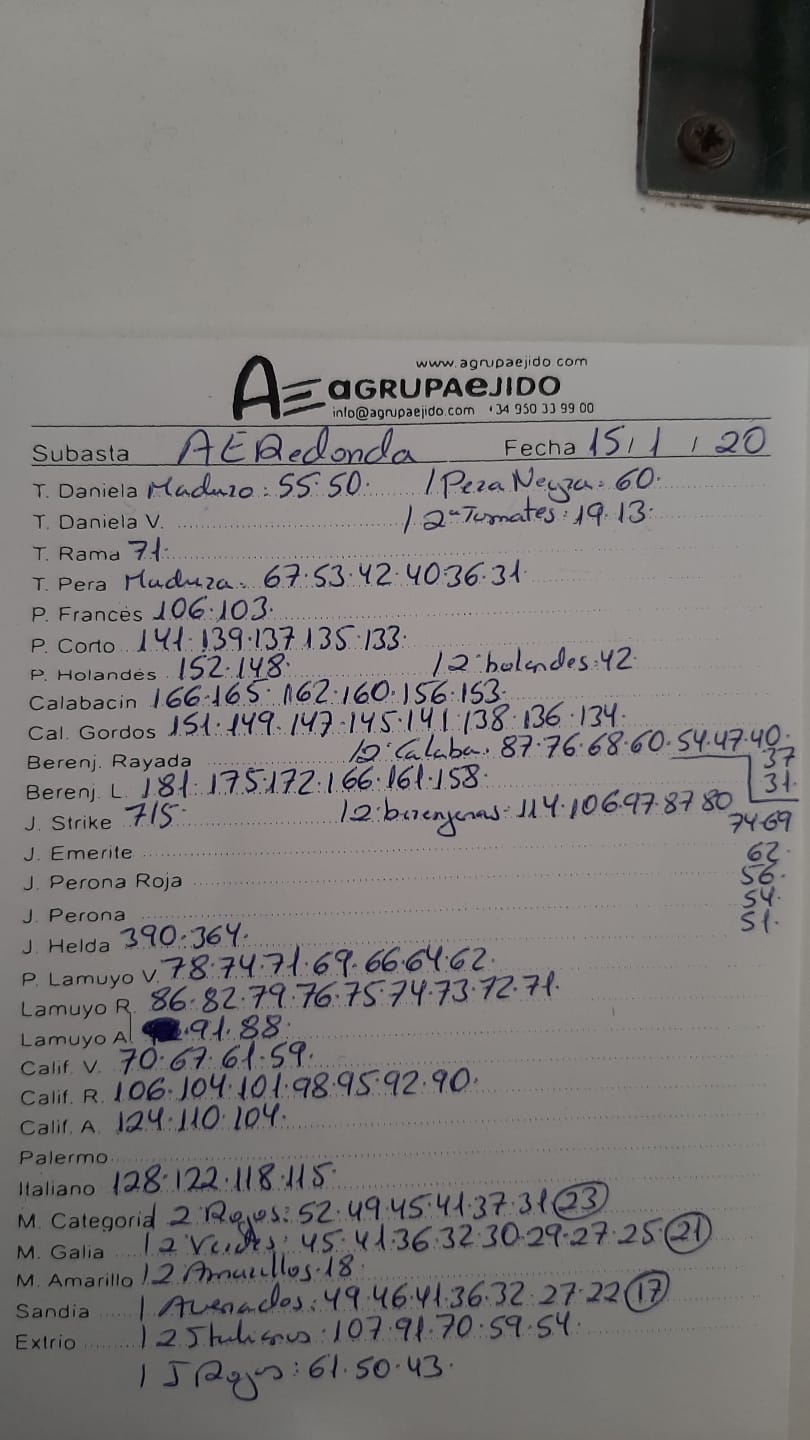 www.agrupaejido.com
AE aGRUPAeJIDO
info@agrupaejido.com +34 950 33 99 00
Subasta AERedonda Fecha 15/1/20
T. Daniela Maduro: 55·50· / Pera Negra: 60·
T. Daniela V. / 2ª Tomates: 19·13·
T. Rama 71·
T. Pera Madura: 67·53·42·40·36·31·
P. Francés 106·103·
P. Corto 141·139·137·135·133·
P. Holandés 152·148· / 2ª holandes: 42·
Calabacin 166·165·162·160·156·153·
Cal. Gordos 151·149·147·145·141·138·136·134·
Berenj. Rayada / 2ª Calaba. 87·76·68·60·54·47·40·
37
Berenj. L. 181·175·172·166·161·158·
31·
J. Strike 715· / 2ª berenjenas: 114·106·97·87·80
74·69
J. Emerite
62·
J. Perona Roja
56·
54·
J. Perona
51·
J. Helda 390·364·
P. Lamuyo V. 78·74·71·69·66·64·62·
Lamuyo R. 86·82·79·76·75·74·73·72·71·
Lamuyo A. 91·88·
Calif. V. 70·67·61·59·
Calif. R. 106·104·101·98·95·92·90·
Calif. A. 124·110·104·
Palermo
Italiano 128·122·118·115·
M. Categoria 2ª Rojos: 52·49·45·41·37·31 23
M. Galia / 2 Verdes: 45·41·36·32·30·29·27·25 21
M. Amarillo / 2 Amarillos·18·
Sandia / Asenados: 49·46·41·36·32·27·22 17
Extrio / 2 Italianos: 107·91·70·59·54·
/ J Rojos: 61·50·43·